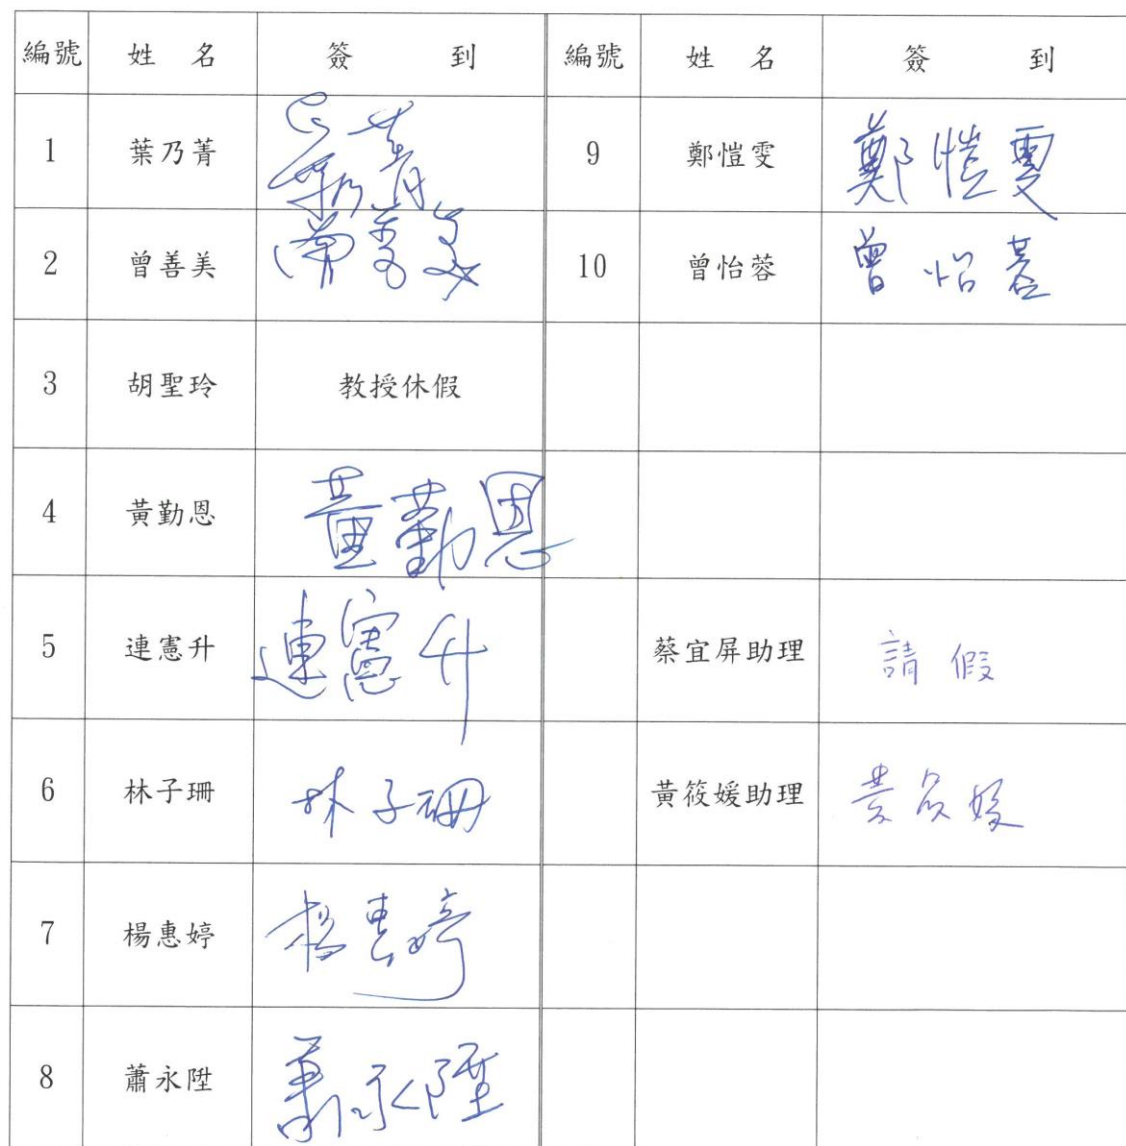 編號 姓 名 簽 到 編號 姓 名 簽 到
1 葉乃菁 葉乃菁 9 鄭愷雯 鄭愷雯
2 曾善美 曾善美 10 曾怡蓉 曾怡蓉
3 胡聖玲 教授休假
4 黃勤恩 黃勤恩
5 連憲升 連憲升 蔡宜屏助理 請假
6 林子珊 林子珊 黃筱媛助理 黃筱媛
7 楊惠婷 楊惠婷
8 蕭永陞 蕭永陞